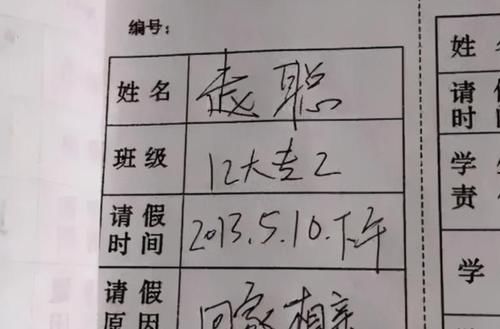 编号：
姓名 聪
班级 12大专2
请假
时间 2013.5.10.下午
请假
原因 回家相亲
姓
请
时
学
责
学